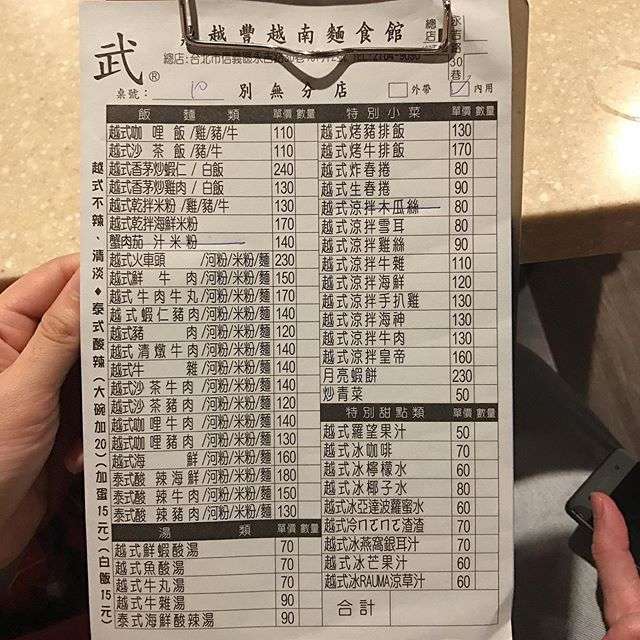 越豐越南麵食館
總店
永吉路30巷
總店:台北市信義區永吉路30巷
武®
桌號: 10
別無分店
外帶 內用
越式不辣、清淡◆泰式酸辣(大碗加20)(加蛋15元)(白飯15元)
飯麵類 單價 數量
越式咖哩飯/雞/豬/牛 110
越式沙茶飯/豬/牛 110
越式香茅炒蝦仁/白飯 240
越式香茅炒雞肉/白飯 130
越式乾拌米粉/雞/豬/牛 130
越式乾拌海鮮米粉 170
蟹肉茄汁米粉 140
越式火車頭/河粉/米粉/麵 230
越式鮮牛肉/河粉/米粉/麵 150
越式牛肉牛丸/河粉/米粉/麵 170
越式蝦仁豬肉/河粉/米粉/麵 140
越式豬肉/河粉/米粉/麵 120
越式清燉牛肉/河粉/米粉/麵 140
越式牛雜/河粉/米粉/麵 140
越式沙茶牛肉/河粉/米粉/麵 140
越式沙茶豬肉/河粉/米粉/麵 120
越式咖哩牛肉/河粉/米粉/麵 140
越式咖哩豬肉/河粉/米粉/麵 130
越式海鮮/河粉/米粉/麵 160
泰式酸辣海鮮/河粉/米粉/麵 180
泰式酸辣牛肉/河粉/米粉/麵 150
泰式酸辣豬肉/河粉/米粉/麵 130
湯類 單價 數量
越式鮮蝦酸湯 70
越式魚酸湯 70
越式牛丸湯 70
越式牛雜湯 90
泰式海鮮酸辣湯 90
特別小菜 單價 數量
越式烤豬排飯 130
越式烤牛排飯 170
越式炸春捲 80
越式生春捲 90
越式涼拌木瓜絲 80
越式涼拌雪耳 80
越式涼拌雞絲 90
越式涼拌牛雜 110
越式涼拌海鮮 120
越式涼拌手扒雞 130
越式涼拌海神 130
越式涼拌牛肉 130
越式涼拌皇帝 160
月亮蝦餅 230
炒青菜 50
特別甜點類 單價 數量
越式羅望果汁 50
越式冰咖啡 70
越式冰檸檬水 60
越式冰椰子水 80
越式冰亞達波蘿蜜水 60
越式冷ㄇㄛㄇㄛ渣渣 70
越式冰燕窩銀耳汁 70
越式冰芒果汁 60
越式冰RAUMA涼草汁 60
合計